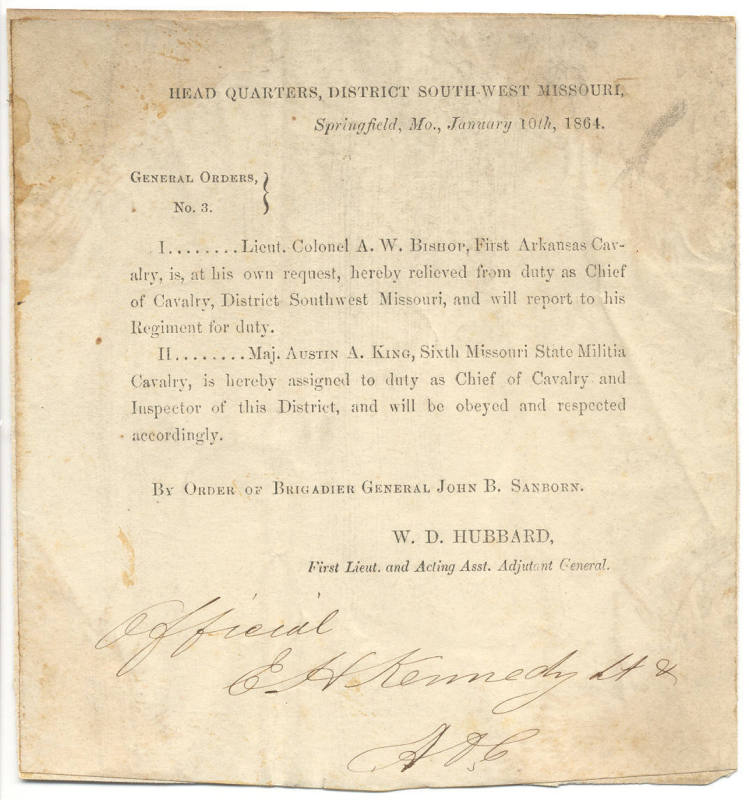 HEAD QUARTERS, DISTRICT SOUTH-WEST MISSOURI,
Springfield, Mo., January 10th, 1864.
GENERAL ORDERS, }
No. 3.
I........Lieut. Colonel A. W. BISHOP, First Arkansas Cav-
alry, is, at his own request, hereby relieved from duty as Chief
of Cavalry, District Southwest Missouri, and will report to his
Regiment for duty.
II........Maj. AUSTIN A. KING, Sixth Missouri State Militia
Cavalry, is hereby assigned to duty as Chief of Cavalry and
Inspector of this District, and will be obeyed and respected
accordingly.
BY ORDER OF BRIGADIER GENERAL JOHN B. SANBORN.
W. D. HUBBARD,
First Lieut. and Acting Asst. Adjutant General.
Official
E H Kennedy Lt &
A D C